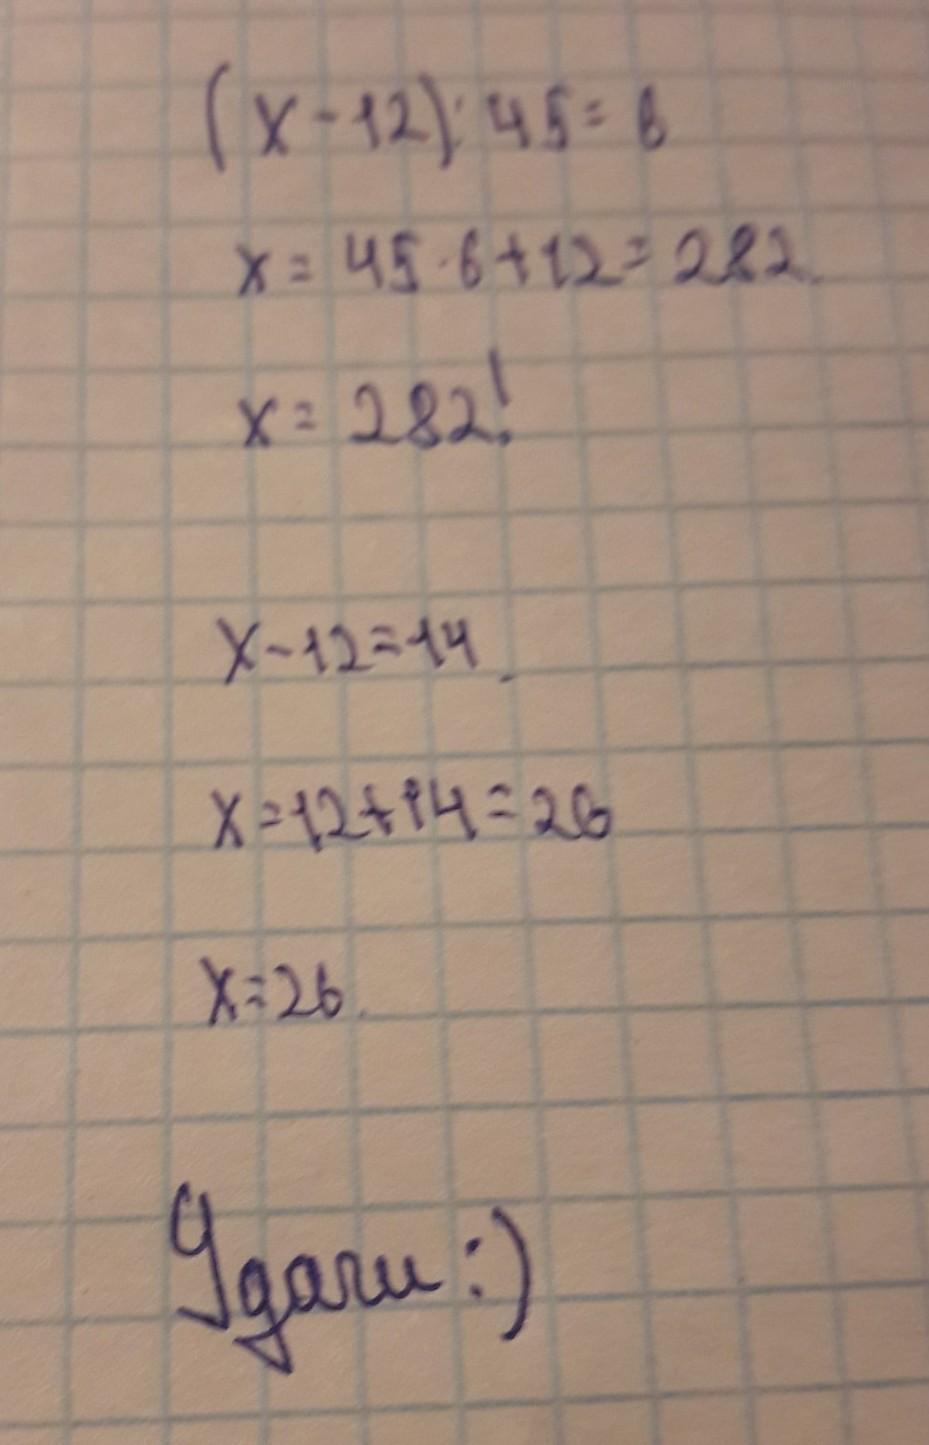 (x-12):45=6
x=45·6+12=282.
x=282!
x-12=14.
x=12+14=26
x=26.
Удачи:)